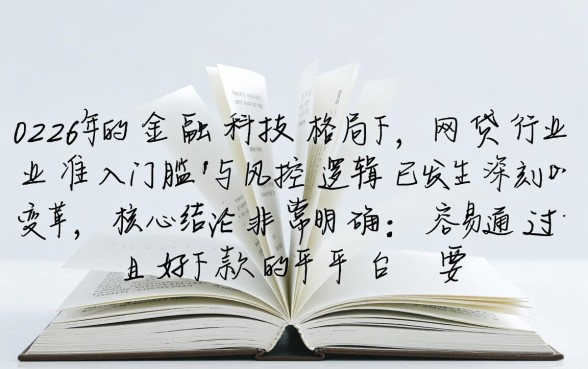 0226年的金融科技格局下，网贷行业
业准入门槛'与风控逻辑已发生深刻的
变革，核心结论非常明确：容易通过
且好下款的平平台 要